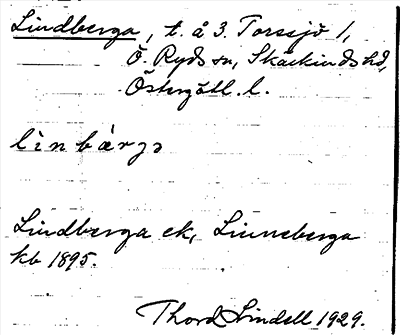 Lindberga, t. å 3. Torssjö 1,
Ö. Ryds sn, Skärkinds hd,
Östergötl. l.
lìnbárgə
Lindberga ek, Linneberga
kb 1895.
Thord Lindell 1929.